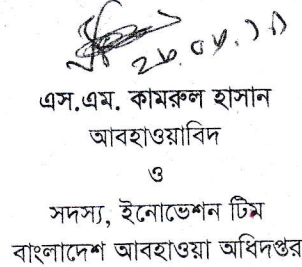 এস.এম. কামরুল হাসান
আবহাওয়াবিদ
ও
সদস্য, ইনোভেশন টিম
বাংলাদেশ আবহাওয়া অধিদপ্তর